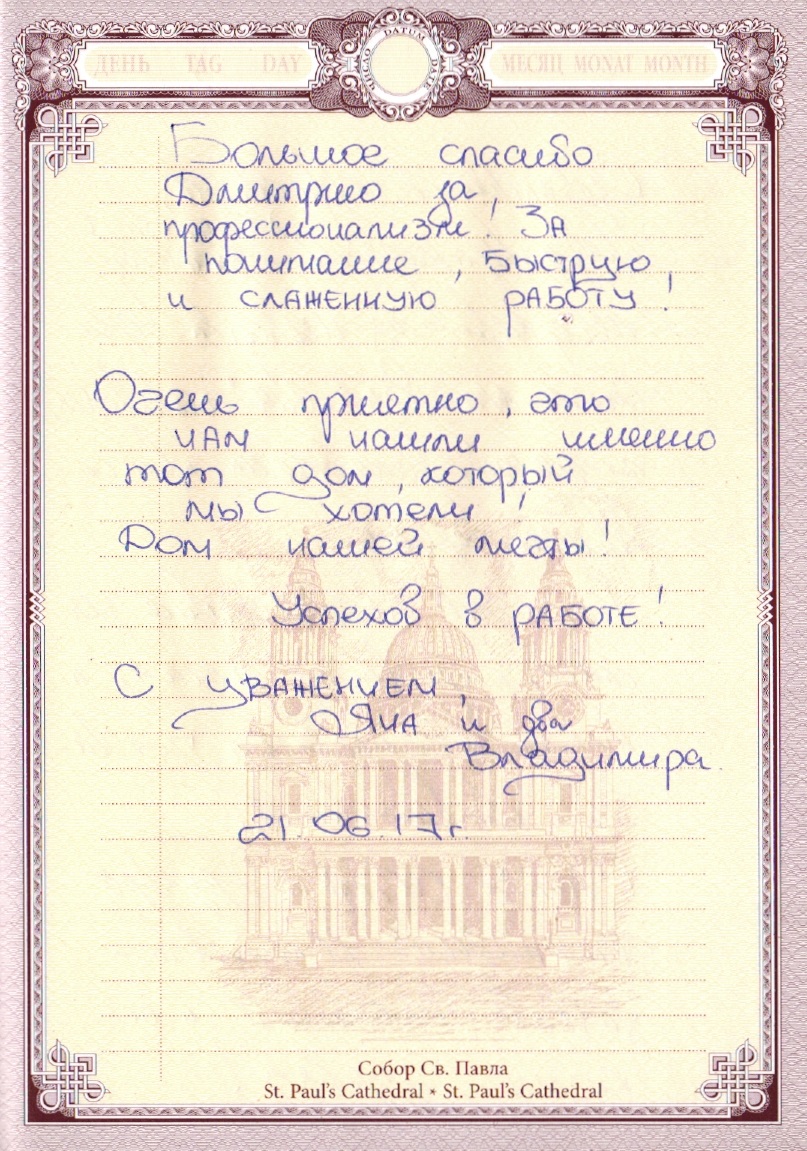 ДЕНЬ TAG DAY
DATUM
МЕСЯЦ MONAT MONTH
Большое спасибо
Дмитрию за,
профессионализм! За
понимание, Быструю,
и слаженную работу!
Очень приятно, что
нам нашли именно
тот дом, который
мы хотели!
Дом нашей мечты!
Успехов в работе!
С уважением,
Яна и два
Владимира.
21.06.17г.
Собор Св. Павла
St. Paul's Cathedral * St. Paul's Cathedral